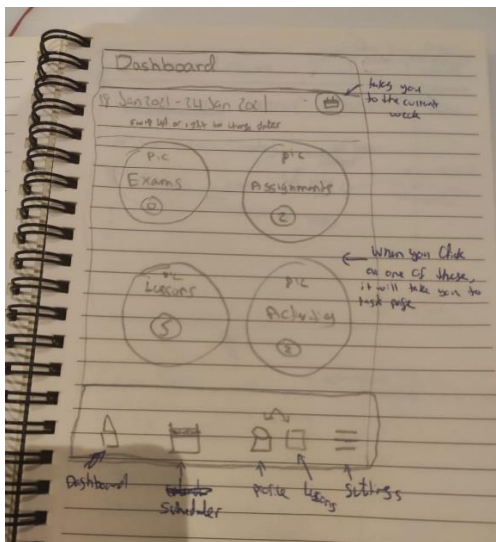 Dashboard
18 Jan 2021 - 24 Jan 2021
takes you
to the current
week
swipe left or right to change dates
pic
Exams
0
pic
Assignments
2
When you Click
on one of these,
it will take you to
task page
pic
Lessons
5
pic
Activities
Dashboard
Scheduler
Lessons
Settings